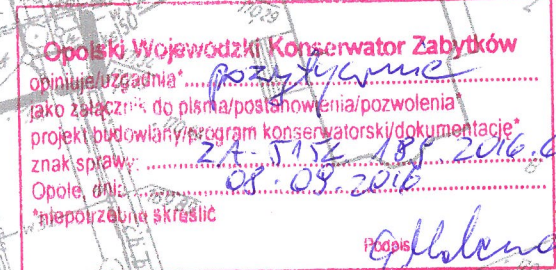 Opolski Wojewódzki Konserwator Zabytków
opiniuje/uzgadnia* pozytywnie
jako załącznik do pisma/postanowienia/pozwolenia*
projekt budowlany/program konserwatorski/dokumentację*
znak sprawy: 2016.
Opole, dnia 08.09.2016
*niepotrzebne skreślić
Podpis